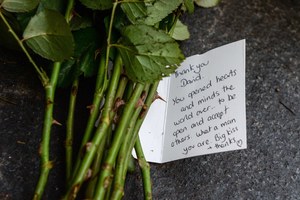 Thank you
David
You opened hearts
and minds the
world over... to be
open and accept
others. What a man
you are. Big kiss
+ thanks ♡